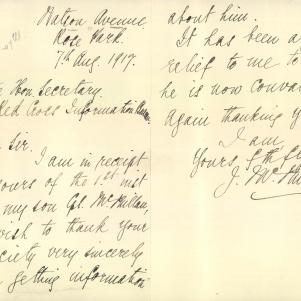 Watson Avenue
Rose Park.
7th Aug. 1917.
Hon. Secretary.
Red Cross Information
Sir.
I am in receipt
yours of the 1st inst
my son Cpl. McMillan,
wish to thank your
society very sincerely
getting information
about him.
It has been a
relief to me to
he is now conva
Again thanking y
I am,
Yours
J. McMil